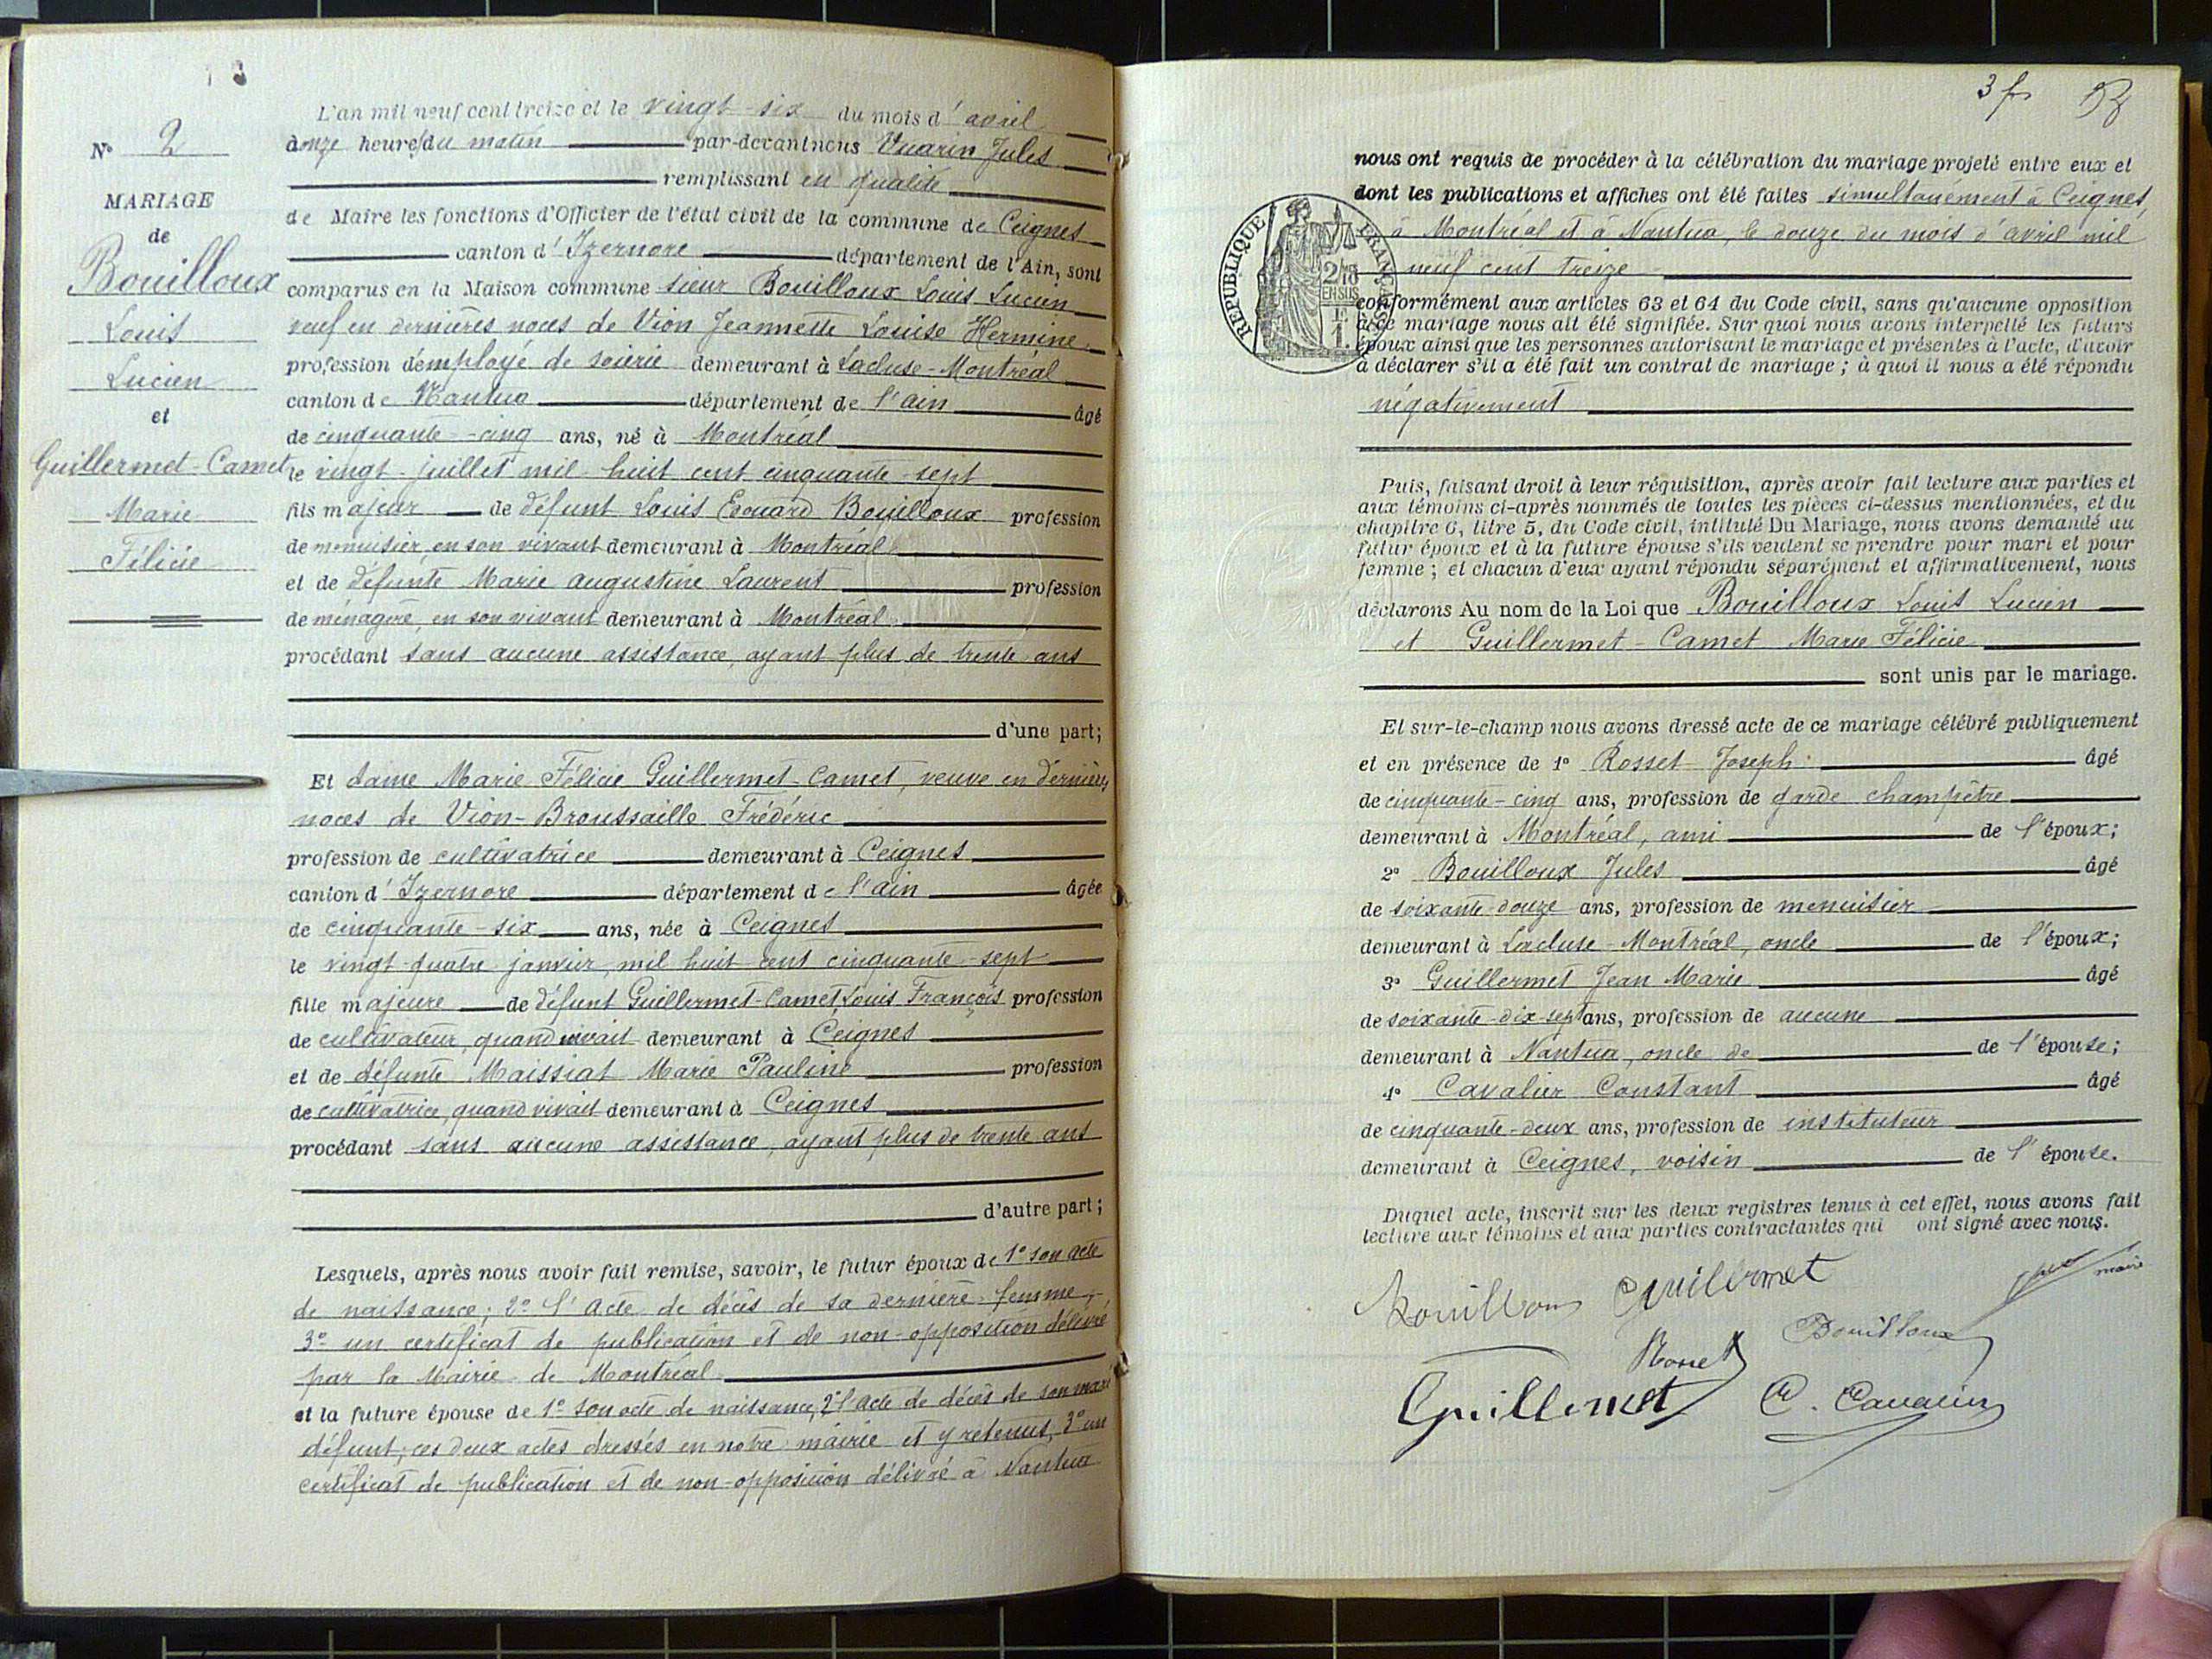 N° 2
MARIAGE
de
Bouilloux
Louis
Lucien
et
Guillermet-Camet
Marie
Félicie
L'an mil neuf cent treize et le vingt-six du mois d'avril
heures du matin par-devant nous Vuarin Jules
remplissant en qualité
de Maire les fonctions d'Officier de l'état civil de la commune de Ceignes
canton d'Izernore département de l'Ain, sont
comparus en la Maison commune sieur Bouilloux Louis Lucien
veuf en dernières noces de Vion Jeannette Louise Hermine
profession d'employé de soierie demeurant à Lacluse-Montréal
canton de Nantua département de l'ain âgé
de cinquante-cinq ans, né à Montréal
le vingt juillet mil huit cent cinquante-sept
fils majeur de défunt Louis Edouard Bouilloux profession
de menuisier, en son vivant demeurant à Montréal
et de défunte Marie augustine Laurent profession
de ménagère, en son vivant demeurant à Montréal
procédant sans aucune assistance, ayant plus de trente ans
d'une part;
Et dame Marie Félicie Guillermet-Camet, veuve en dernières
noces de Vion-Broussaille Frédéric
profession de cultivatrice demeurant à Ceignes
canton d'Izernore département de l'ain âgée
de cinquante-six ans, née à Ceignes
le vingt-quatre janvier, mil huit cent cinquante-sept
fille majeure de défunt Guillermet-Camet Louis François profession
de cultivateur, quand vivait demeurant à Ceignes
et de défunte Maissiat Marie Pauline profession
de cultivatrice, quand vivait demeurant à Ceignes
procédant sans aucune assistance, ayant plus de trente ans
d'autre part;
Lesquels, après nous avoir fait remise, savoir, le futur époux de 1° son acte
de naissance; 2° l'acte de décès de sa dernière femme;
3° un certificat de publication et de non-opposition délivré
par la Mairie de Montréal
et la future épouse de 1° son acte de naissance, 2° l'acte de décès de son mari
défunt; ces deux actes dressés en notre mairie et y retenus, 3° un
certificat de publication et de non-opposition délivré à Nantua
3 f
nous ont requis de procéder à la célébration du mariage projeté entre eux et
dont les publications et affiches ont été faites simultanément à Ceignes,
à Montréal et à Nantua, le douze du mois d'avril mil
neuf cent treize
conformément aux articles 63 et 64 du Code civil, sans qu'aucune opposition
à ce mariage nous ait été signifiée. Sur quoi nous avons interpellé les futurs
époux ainsi que les personnes autorisant le mariage et présentes à l'acte, d'avoir
à déclarer s'il a été fait un contrat de mariage; à quoi il nous a été répondu
négativement
REPUBLIQUE FRANÇAISE
EN SUS
Puis, faisant droit à leur réquisition, après avoir fait lecture aux parties et
aux témoins ci-après nommés de toutes les pièces ci-dessus mentionnées, et du
chapitre 6, titre 5, du Code civil, intitulé Du Mariage, nous avons demandé au
futur époux et à la future épouse s'ils veulent se prendre pour mari et pour
femme; et chacun d'eux ayant répondu séparément et affirmativement, nous
déclarons Au nom de la Loi que Bouilloux Louis Lucien
et Guillermet-Camet Marie Félicie
sont unis par le mariage.
Et sur-le-champ nous avons dressé acte de ce mariage célébré publiquement
et en présence de 1° Rosset Joseph âgé
de cinquante-cinq ans, profession de garde champêtre
demeurant à Montréal, ami de l'époux;
2° Bouilloux Jules âgé
de soixante-douze ans, profession de menuisier
demeurant à Lacluse-Montréal, oncle de l'époux;
3° Guillermet Jean Marie âgé
de soixante-dix-sept ans, profession de aucune
demeurant à Nantua, oncle de de l'épouse;
4° Cavalier Constant âgé
de cinquante-deux ans, profession de instituteur
demeurant à Ceignes, voisin de l'épouse.
Duquel acte, inscrit sur les deux registres tenus à cet effet, nous avons fait
lecture aux témoins et aux parties contractantes qui ont signé avec nous.
Bouilloux Guillermet
maire
Rosset Bouilloux
Guillermet C. Cavalier